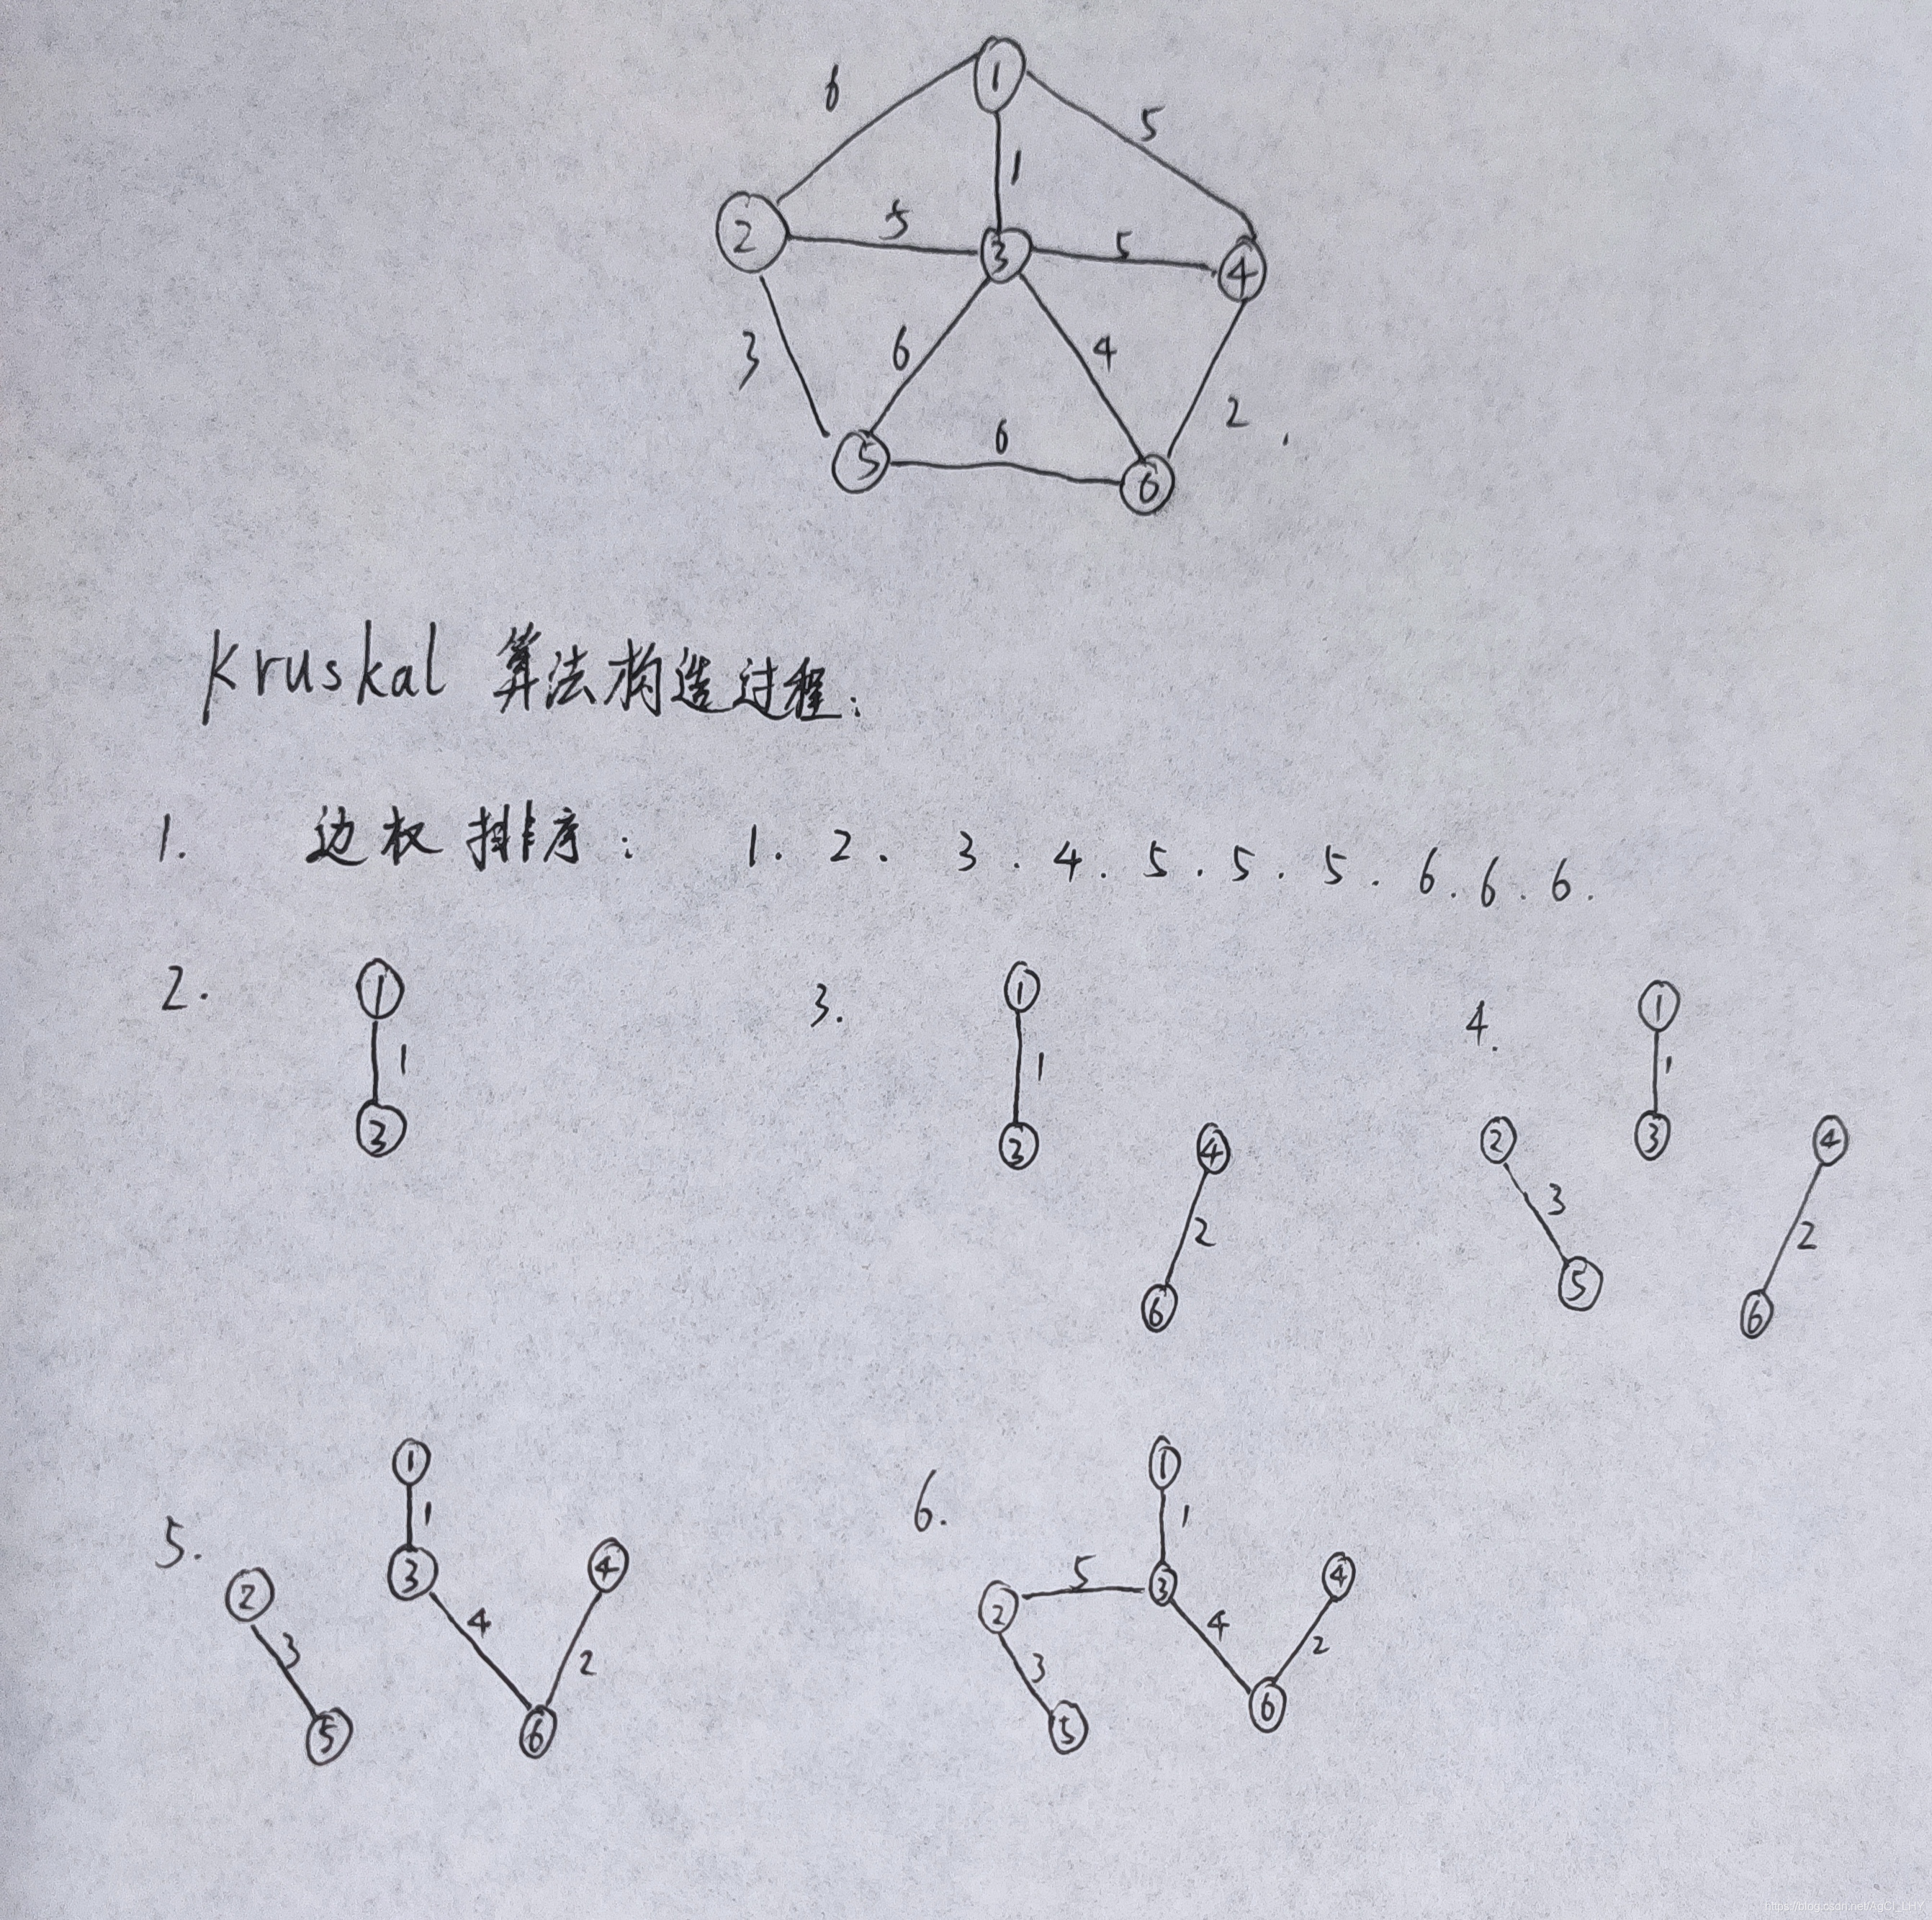 6 1 5
1
2 5 3 5 4
3 6 4 2
6
5 6
Kruskal 算法构造过程:
1. 边权排序: 1. 2. 3. 4. 5. 5. 5. 6. 6. 6.
2. 1 1 3
3. 1 1 3 4 2 6
4. 1 1 3 2 3 5 4 2 6
5. 1 1 3 2 3 5 4 4 2 6
6. 1 1 3 5 2 3 5 4 4 2 6